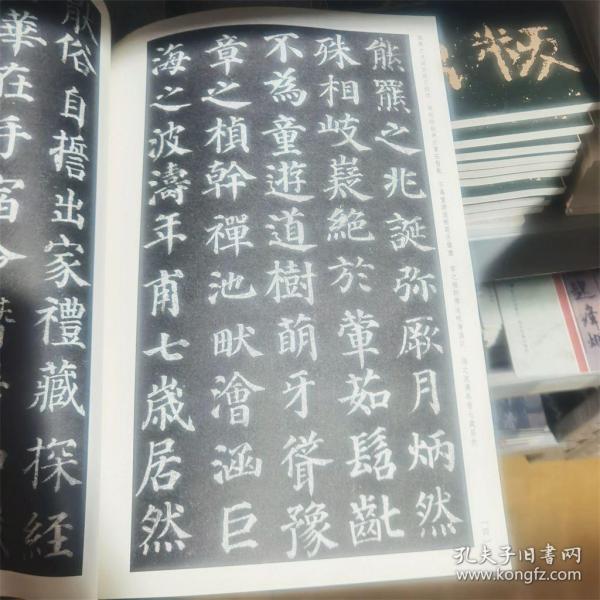 熊羆之兆誕弥厥月炳然
殊相岐嶷絕於葷茹髫齔
不為童遊道樹萌牙聳豫
章之楨幹禪池畎澮涵巨
海之波濤年甫七歲居然
厭俗自誓出家禮藏探經
華在手宿命
孔夫子旧书网
www.kongfz.com